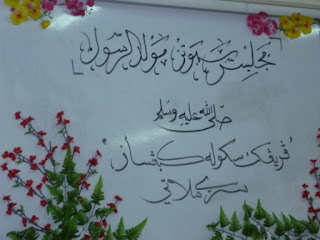 مجليس سمبوتن مولد الرسول
صلى الله عليه وسلم
"ڤريڠكت سكوله كبڠسأن
سري ملاتي"